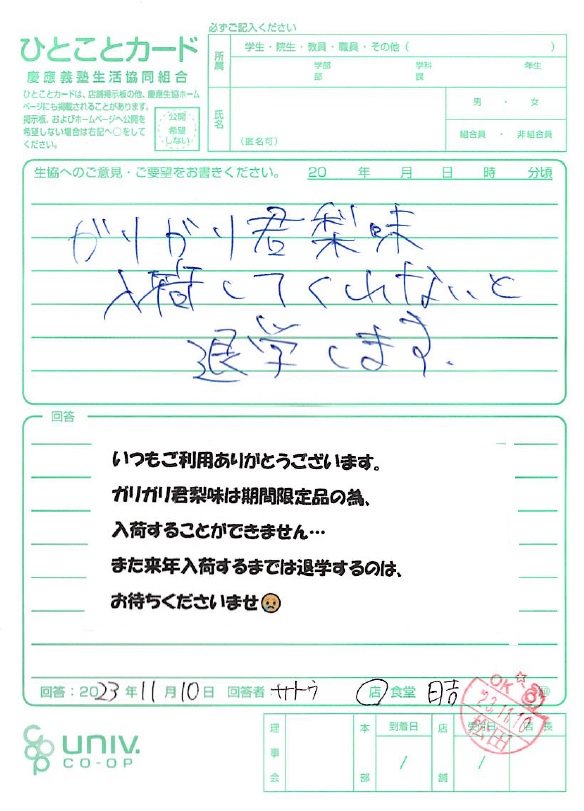 必ずご記入ください
ひとことカード
慶應義塾生活協同組合
ひとことカードは、店舗掲示板の他、慶應生協ホーム
ページにも掲載されることがあります。
掲示板、およびホームページへ公開を
希望しない場合は右記へ○をして
ください。
公開
希望
しない
所属
学生・院生・教員・職員・その他（　　　）
学部 学科 年生
部 課
氏名
（匿名可）
男 ・ 女
組合員 ・ 非組合員
生協へのご意見・ご要望をお書きください。 20 年 月 日 時 分頃
ガリガリ君梨味
入荷してくれないと
退学します.
回答
いつもご利用ありがとうございます。
ガリガリ君梨味は期間限定品の為、
入荷することができません…
また来年入荷するまでは退学するのは、
お待ちくださいませ😢
回答：2023年11月10日 回答者 サトウ 店 食堂 日吉 ㊞
OK
23.11.10
松田
univ.
CO-OP
理事会
本部
到着日
/
店舗
受領日
/
店長